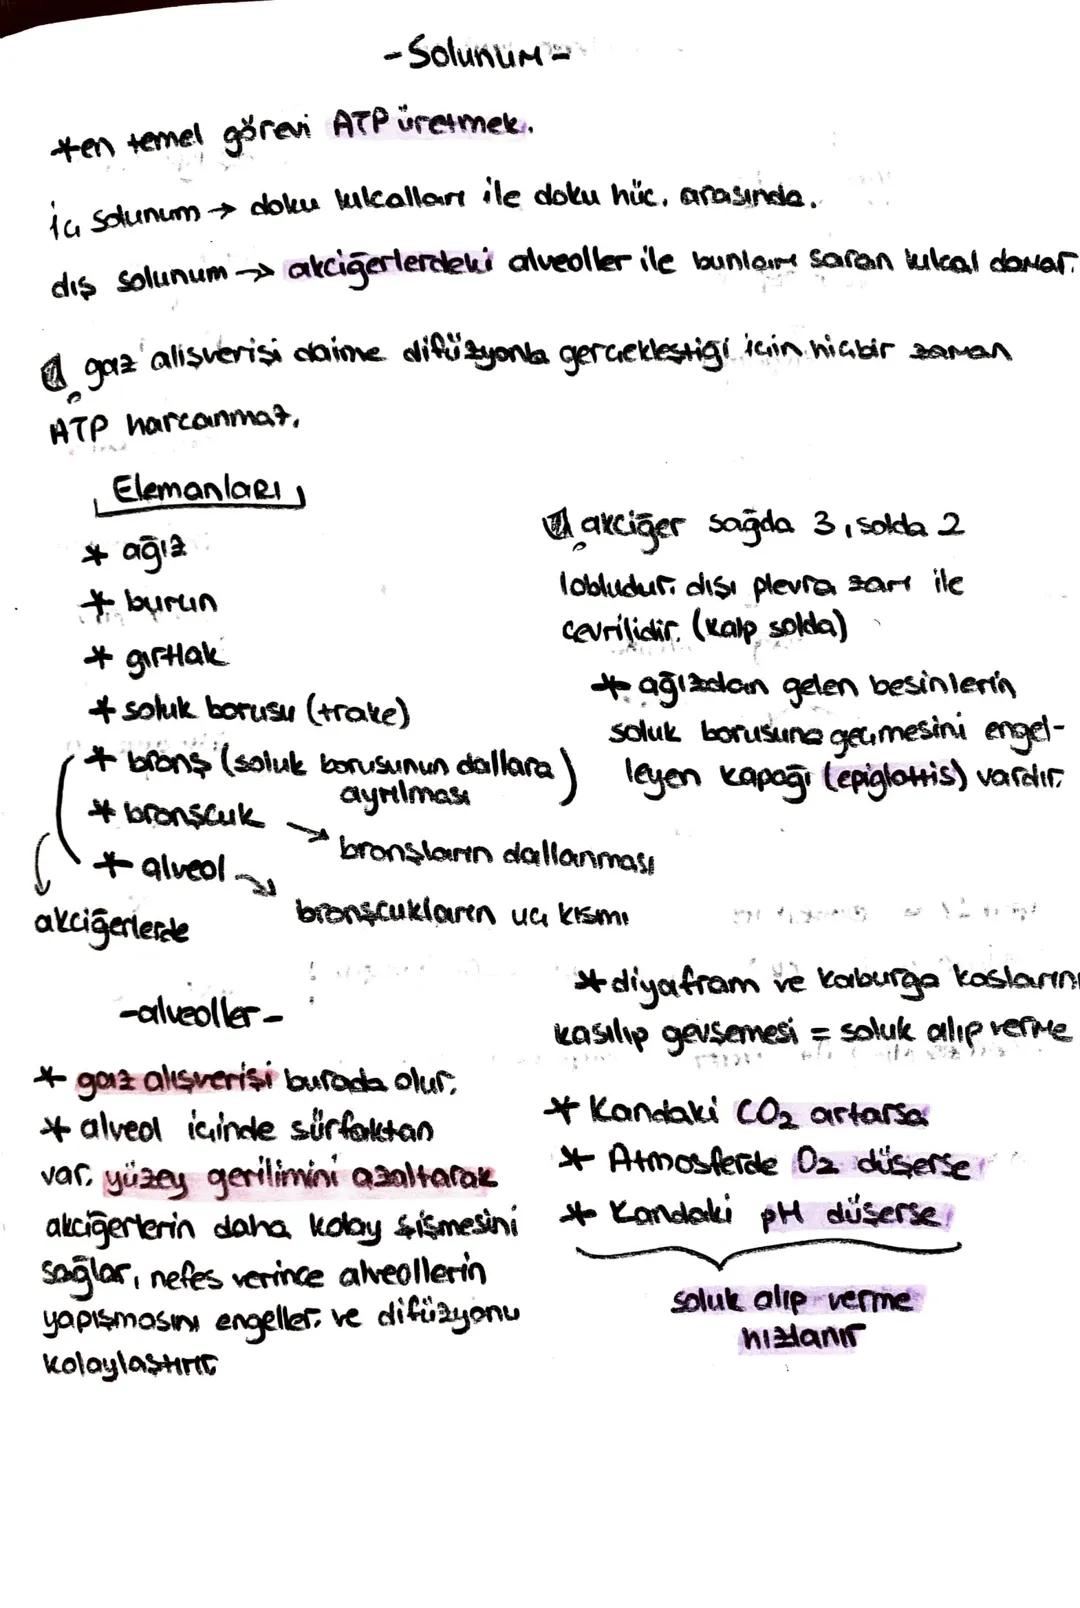 -Solunum-
*en temel görevi ATP üretmek.
iç solunum → doku kılcalları ile doku hüc. arasında.
dış solunum → akciğerlerdeki alveoller ile bunları saran kılcal damar.
gaz alışverişi daima difüzyonla gerçekleştiği için hiçbir zaman
ATP harcanmaz.
Elemanları
* ağız
* burun
* gırtlak
* soluk borusu (trake)
* bronş (soluk borusunun dallara
ayrılması)
* bronşcuk → bronşların dallanması
* alveol → bronşcukların uç kısmı
akciğerlerde
akciğer sağda 3, solda 2
lobludur. dışı plevra zarı ile
çevrilidir. (kalp solda)
* ağızdan gelen besinlerin
soluk borusuna geçmesini engel-
leyen kapağı (epiglottis) vardır.
-alveoller-
* gaz alışverişi burada olur.
* alveol içinde sürfaktan
var. yüzey gerilimini azaltarak
akciğerlerin daha kolay şişmesini
sağlar, nefes verince alveollerin
yapışmasını engeller. ve difüzyonu
kolaylaştırır.
* diyafram ve kaburga kaslarını
kasılıp gevşemesi = soluk alıp verme
* Kandaki CO₂ artarsa
* Atmosferde O₂ düşerse
* Kandaki pH düşerse
soluk alıp verme
hızlanır